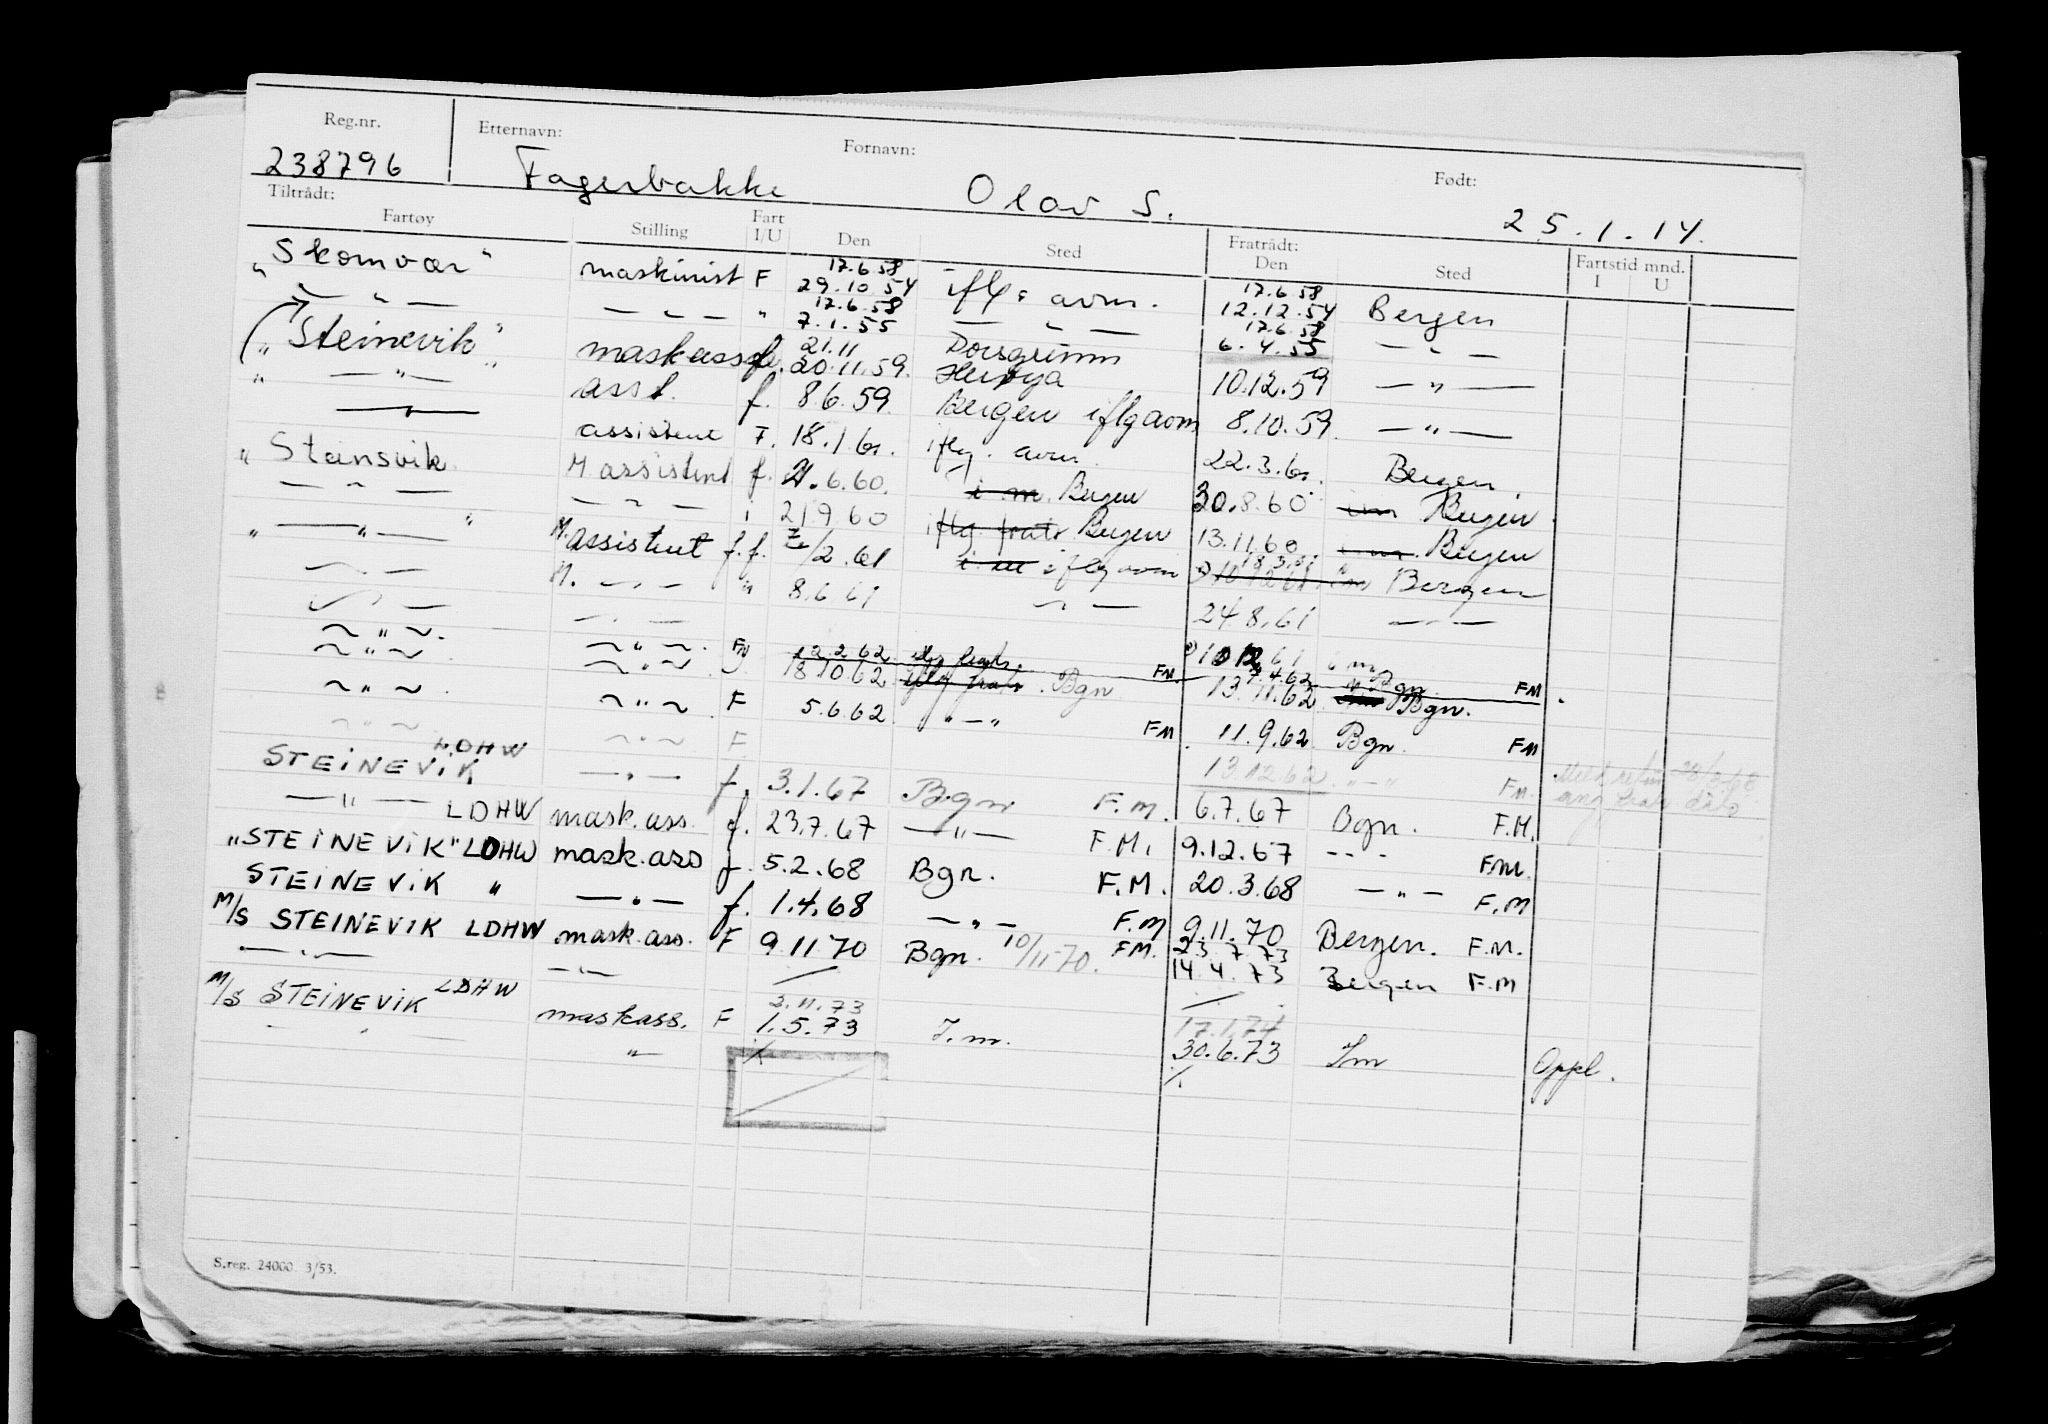 Reg.nr. Etternavn: Fornavn: Født:
238796 Fagerbakke Olav S. 25.1.14.
Tiltrådt: Fratrådt:
Fartøy Stilling Fart I/U Den Sted Den Sted Fartstid mnd. I U
17.6.58 17.6.58
"Skomvær" maskinist F 29.10.54 iflg. avm. 12.12.54 Bergen
17.6.58 17.6.58
— " — — " — " 7.1.55 — " — 6.4.55 — " —
21.11
"Steinevik" mask ass f. 20.11.59. Herøya 10.12.59 — " —
" — " — " asst. f. 8.6.59. Bergen iflg avm 8.10.59. — " —
— " — assistent F. 18.1.60. iflg. avm. 22.3.60. Bergen.
" Steinsvik M assistent f. 21.6.60. i m Bergen 30.8.60 im Bergen.
— " — — " — i 21.9.60 iflg. fratr Bergen 13.11.60 i m. Bergen
" — " — " M. assistent f.f. /2.61 i m iflg avm 18.3.61 Bergen
— " — M. — " — " 8.6.61 — " — 24.8.61 — " —
— " —
~ " ~. 10 12 61 i m
~ " ~ ~ " ~. FN 12.2.62 iflg fratr. FM 7.4.62 Bgn. FM
~ " ~ 18.10.62 iflg fratr. Bgn 13.11.62 Bgn.
~ " ~. ~ " ~ F 5.6.62 " — " FM. 11.9.62 Bgn. FM
~ " ~ ~ " ~ F 13.12.62. " — " FM.
LDHW
STEINEVIK — " — f. 3.1.67 Bgn F.M. 6.7.67 Bgn. F.M.
— " — LDHW mask.ass. f. 23.7.67 — " — F.M. 9.12.67 — " — F.M.
"STEINEVIK" LDHW mask.ass f. 5.2.68 Bgn. F.M. 20.3.68 — " — F.M
STEINEVIK " — " — f. 1.4.68 — " — F.M 9.11.70 Bergen. F.M.
M/S STEINEVIK LDHW mask.ass. F 9.11.70 Bgn. 10/11-70. FM. 23.7.73
— " — — " — 14.4.73 Bergen F.M
LDHW 2.11.73 17.1.74
M/S STEINEVIK maskass. F 1.5.73 I.m. 30.6.73 Im Oppl.
— " — "
S.reg. 24000 3/53.